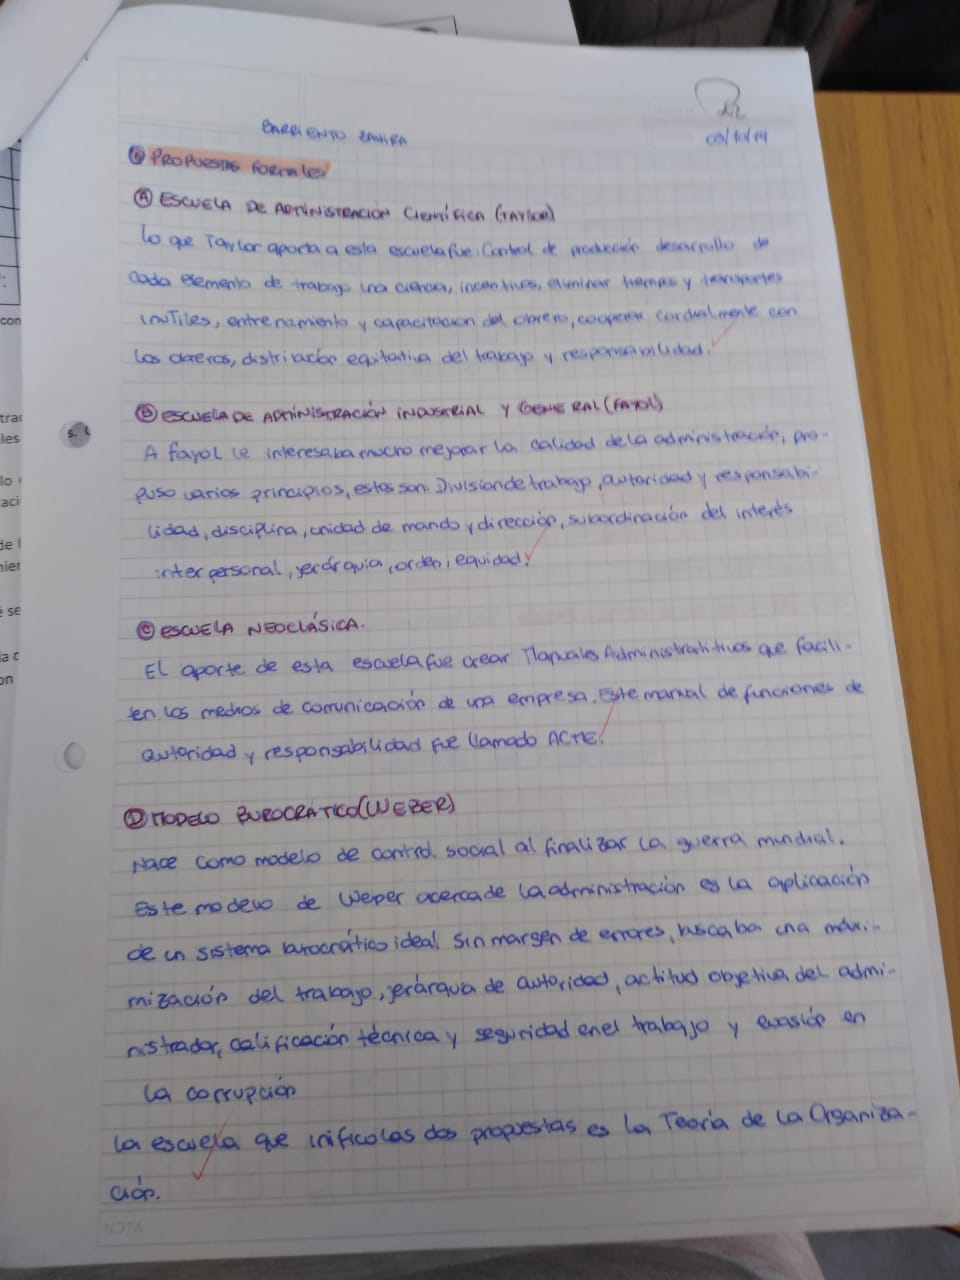 BARRIENTO ZAHIRA
03/10/19
① PROPUESTAS FORMALES
Ⓐ ESCUELA DE ADMINISTRACIÓN CIENTÍFICA (TAYLOR)
Lo que Taylor aporta a esta escuela fue: Control de producción desarrollo de
cada elemento de trabajo una ciencia, incentivos, eliminar tiempos y transportes
inutiles, entrenamiento y capacitacion del obrero, cooperar cordialmente con
los obreros, distribución equitativa del trabajo y responsabilidad.
Ⓑ ESCUELA DE ADMINISTRACIÓN INDUSTRIAL Y GENERAL (FAYOL)
A fayol le interesaba mucho mejorar la calidad de la administración, pro-
puso varios principios, estos son: Division de trabajo, autoridad y responsabi-
lidad, disciplina, unidad de mando y dirección, subordinación del interés
interpersonal, jerárquia, orden, equidad.
Ⓒ ESCUELA NEOCLÁSICA.
El aporte de esta escuela fue crear Manuales Administratitivos que facili-
ten los medios de comunicación de una empresa. Este manual de funciones de
autoridad y responsabilidad fue llamado ACME.
Ⓓ MODELO BUROCRÁTICO (WEBER)
Nace como modelo de control social al finalizar la guerra mundial.
Este modelo de Weber acerca de la administración es la aplicación
de un sistema burocrático ideal sin margen de errores, buscaba una máxi-
mización del trabajo, jerárquia de autoridad, actitud objetiva del admi-
nistrador, calificación técnica y seguridad en el trabajo y evasión en
la corrupción
La escuela que inifico las dos propuestas es la Teoría de la Organiza-
ción.
s.
con
les
lo
aci
de l
nier
é se
la c
on